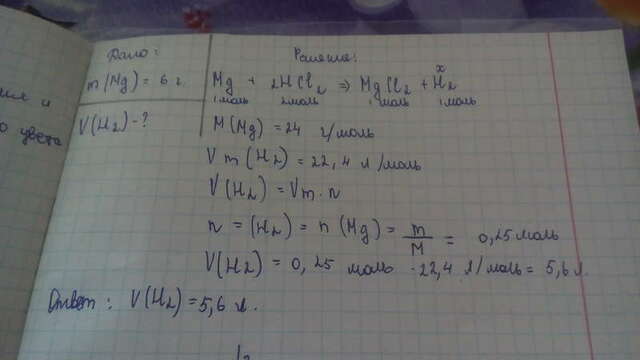 Дано:
Решение:
m(Mg) = 6 г.
x
Mg + 2HCl₂ ⇒ MgCl₂ + H₂
1 моль 2 моль 1 моль 1 моль
V(H₂) - ?
M(Mg) = 24 г/моль
Vm(H₂) = 22,4 л/моль
V(H₂) = Vm · n
n = (H₂) = n (Mg) = m/M = 0,25 моль
V(H₂) = 0,25 моль · 22,4 л/моль = 5,6 л.
Ответ: V(H₂) = 5,6 л.
и
цвета